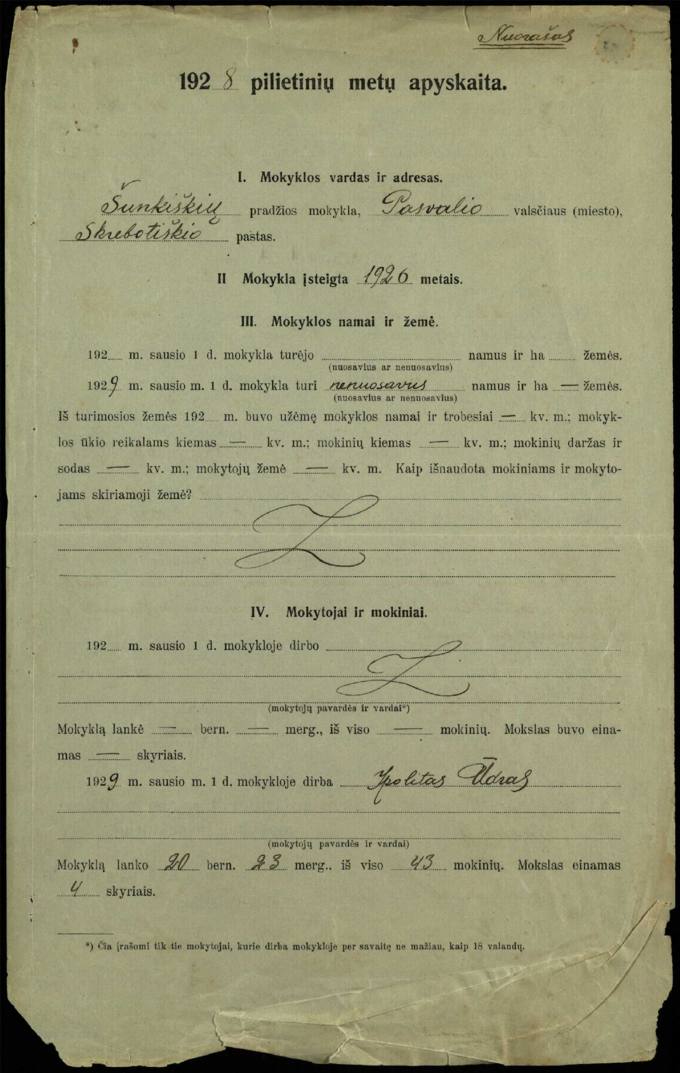 Nuorašas
1928 pilietinių metų apyskaita.
I. Mokyklos vardas ir adresas.
Šunkiškių pradžios mokykla, Pasvalio valsčiaus (miesto),
Skrebotiškio paštas.
II Mokykla įsteigta 1926 metais.
III. Mokyklos namai ir žemė.
192 m. sausio 1 d. mokykla turėjo namus ir ha žemės.
(nuosavius ar nenuosavius)
1929 m. sausio m. 1 d. mokykla turi nenuosavus namus ir ha — žemės.
(nuosavius ar nenuosavius)
Iš turimosios žemės 192 m. buvo užėmę mokyklos namai ir trobesiai — kv. m.; mokyk-
los ūkio reikalams kiemas — kv. m.; mokinių kiemas — kv. m.; mokinių daržas ir
sodas — kv. m.; mokytojų žemė — kv. m. Kaip išnaudota mokiniams ir mokyto-
jams skiriamoji žemė?
IV. Mokytojai ir mokiniai.
192 m. sausio 1 d. mokykloje dirbo
(mokytojų pavardės ir vardai*)
Mokyklą lankė — bern. — merg., iš viso — mokinių. Mokslas buvo eina-
mas — skyriais.
1929 m. sausio m. 1 d. mokykloje dirba Ipolitas Ūdras
(mokytojų pavardės ir vardai)
Mokyklą lanko 20 bern. 23 merg., iš viso 43 mokinių. Mokslas einamas
4 skyriais.
*) Čia įrašomi tik tie mokytojai, kurie dirba mokykloje per savaitę ne mažiau, kaip 18 valandų.